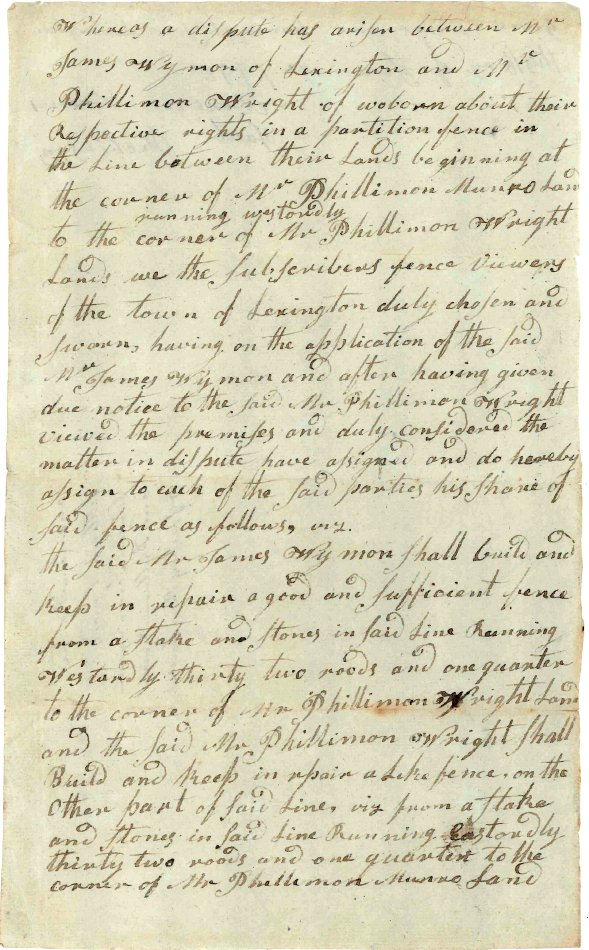 Whereas a dispute has arisen between Mr
James Wymon of Lexington and Mr
Phillimon Wright of woborn about their
Respective rights in a partition fence in
the Line between their Lands beginning at
the corner of Mr Phillimon Munro Land
running westordly
to the corner of Mr Phillimon Wright
Lands we the Subscribers fence Viewers
of the town of Lexington duly chosen and
sworn, having on the application of the said
Mr James Wymon and after having given
due notice to the said Mr Phillimon Wright
Viewed the premises and duly considered the
matter in dispute have assigned and do hereby
assign to each of the said parties his Share of
said fence as follows, viz.
the said Mr James Wymon shall build and
Keep in repair a good and sufficient fence
from a stake and stones in said Line Running
Westardly thirty two roods and one quarter
to the corner of Mr Phillimon Wright Land
and the said Mr Phillimon Wright Shall
Build and Keep in rpair a Like fence, on the
Other part of said Line, viz from a stake
and stones in said Line Running Eastordly
thirty two roods and one quarter to the
corner of Mr Phellimon Munro Land